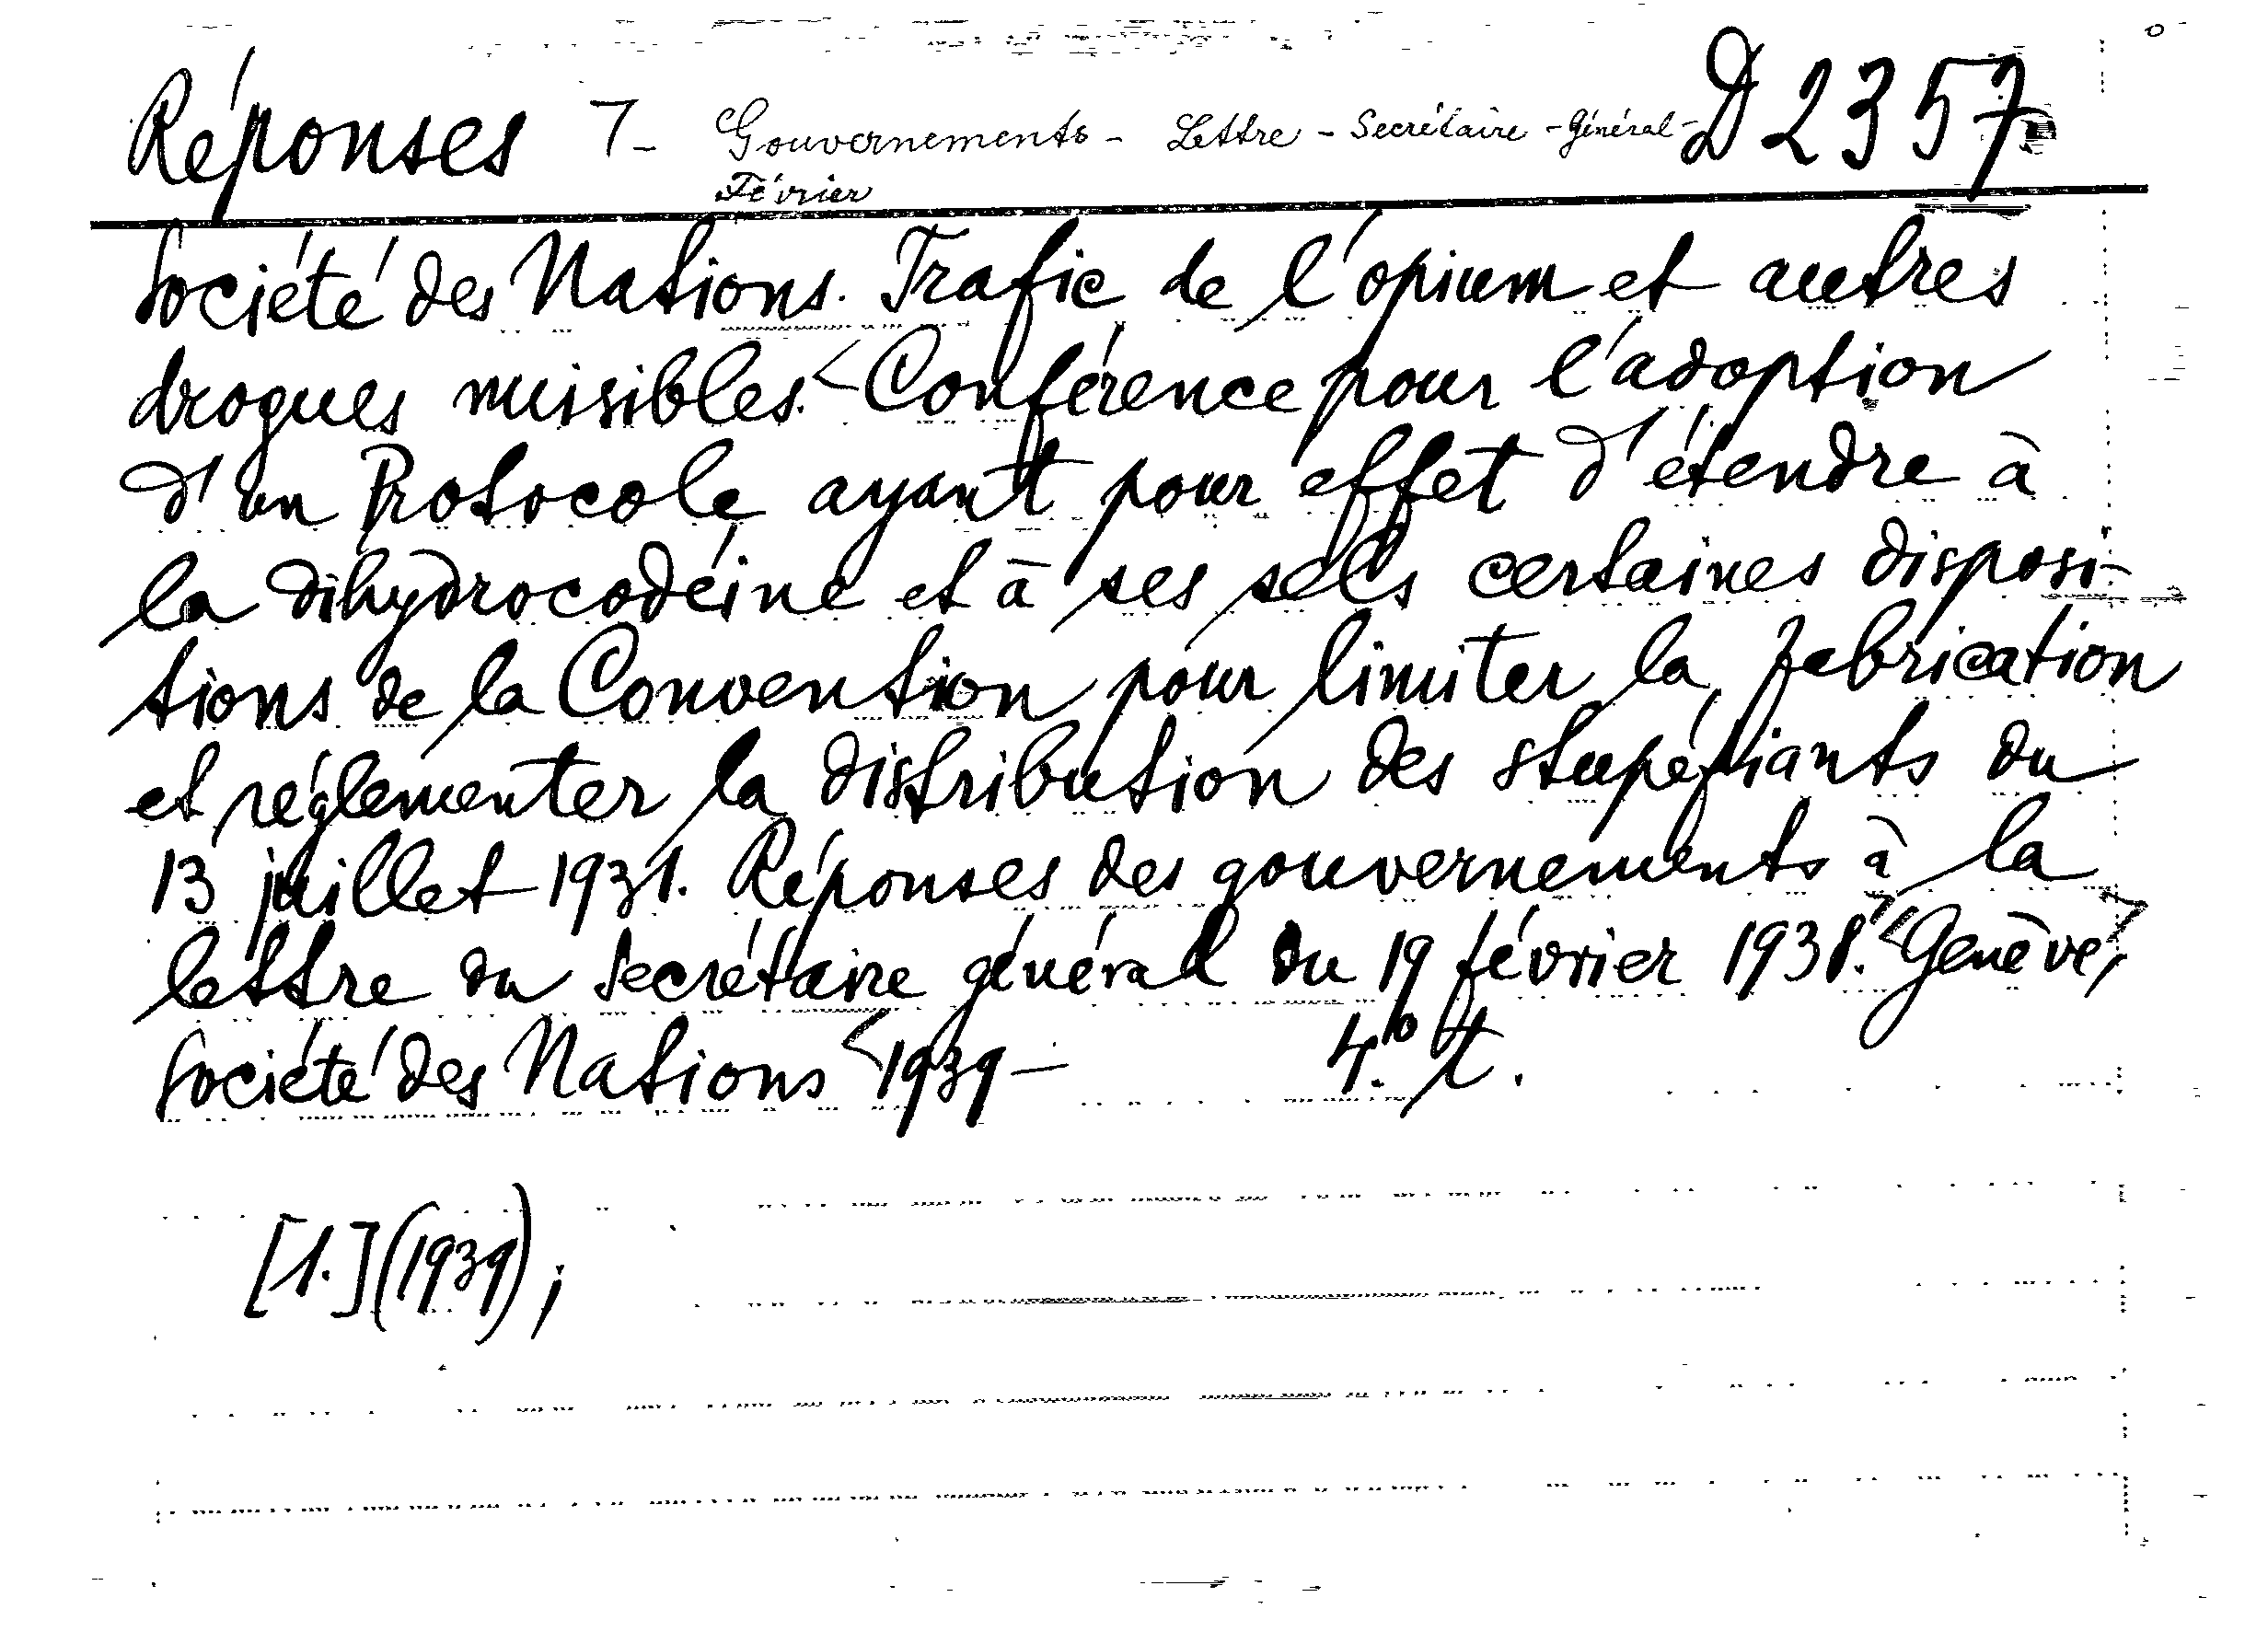 Réponses 7- Gouvernements - Lettre - Secrétaire - Général - D 2357
Février
Société des Nations. Trafic de l'opium et autres
drogues nuisibles. < Conférence pour l'adoption
d'un Protocole ayant pour effet d'étendre à
la dihydrocodéine et à ses sels certaines disposi-
tions de la Convention pour limiter la fabrication
et réglementer la distribution des stupéfiants du
13 juillet 1931. Réponses des gouvernements à la
lettre du Secrétaire général du 19 février 1938. < Genève,
Société des Nations < 1939 - 4.º t.
[1.] (1939);